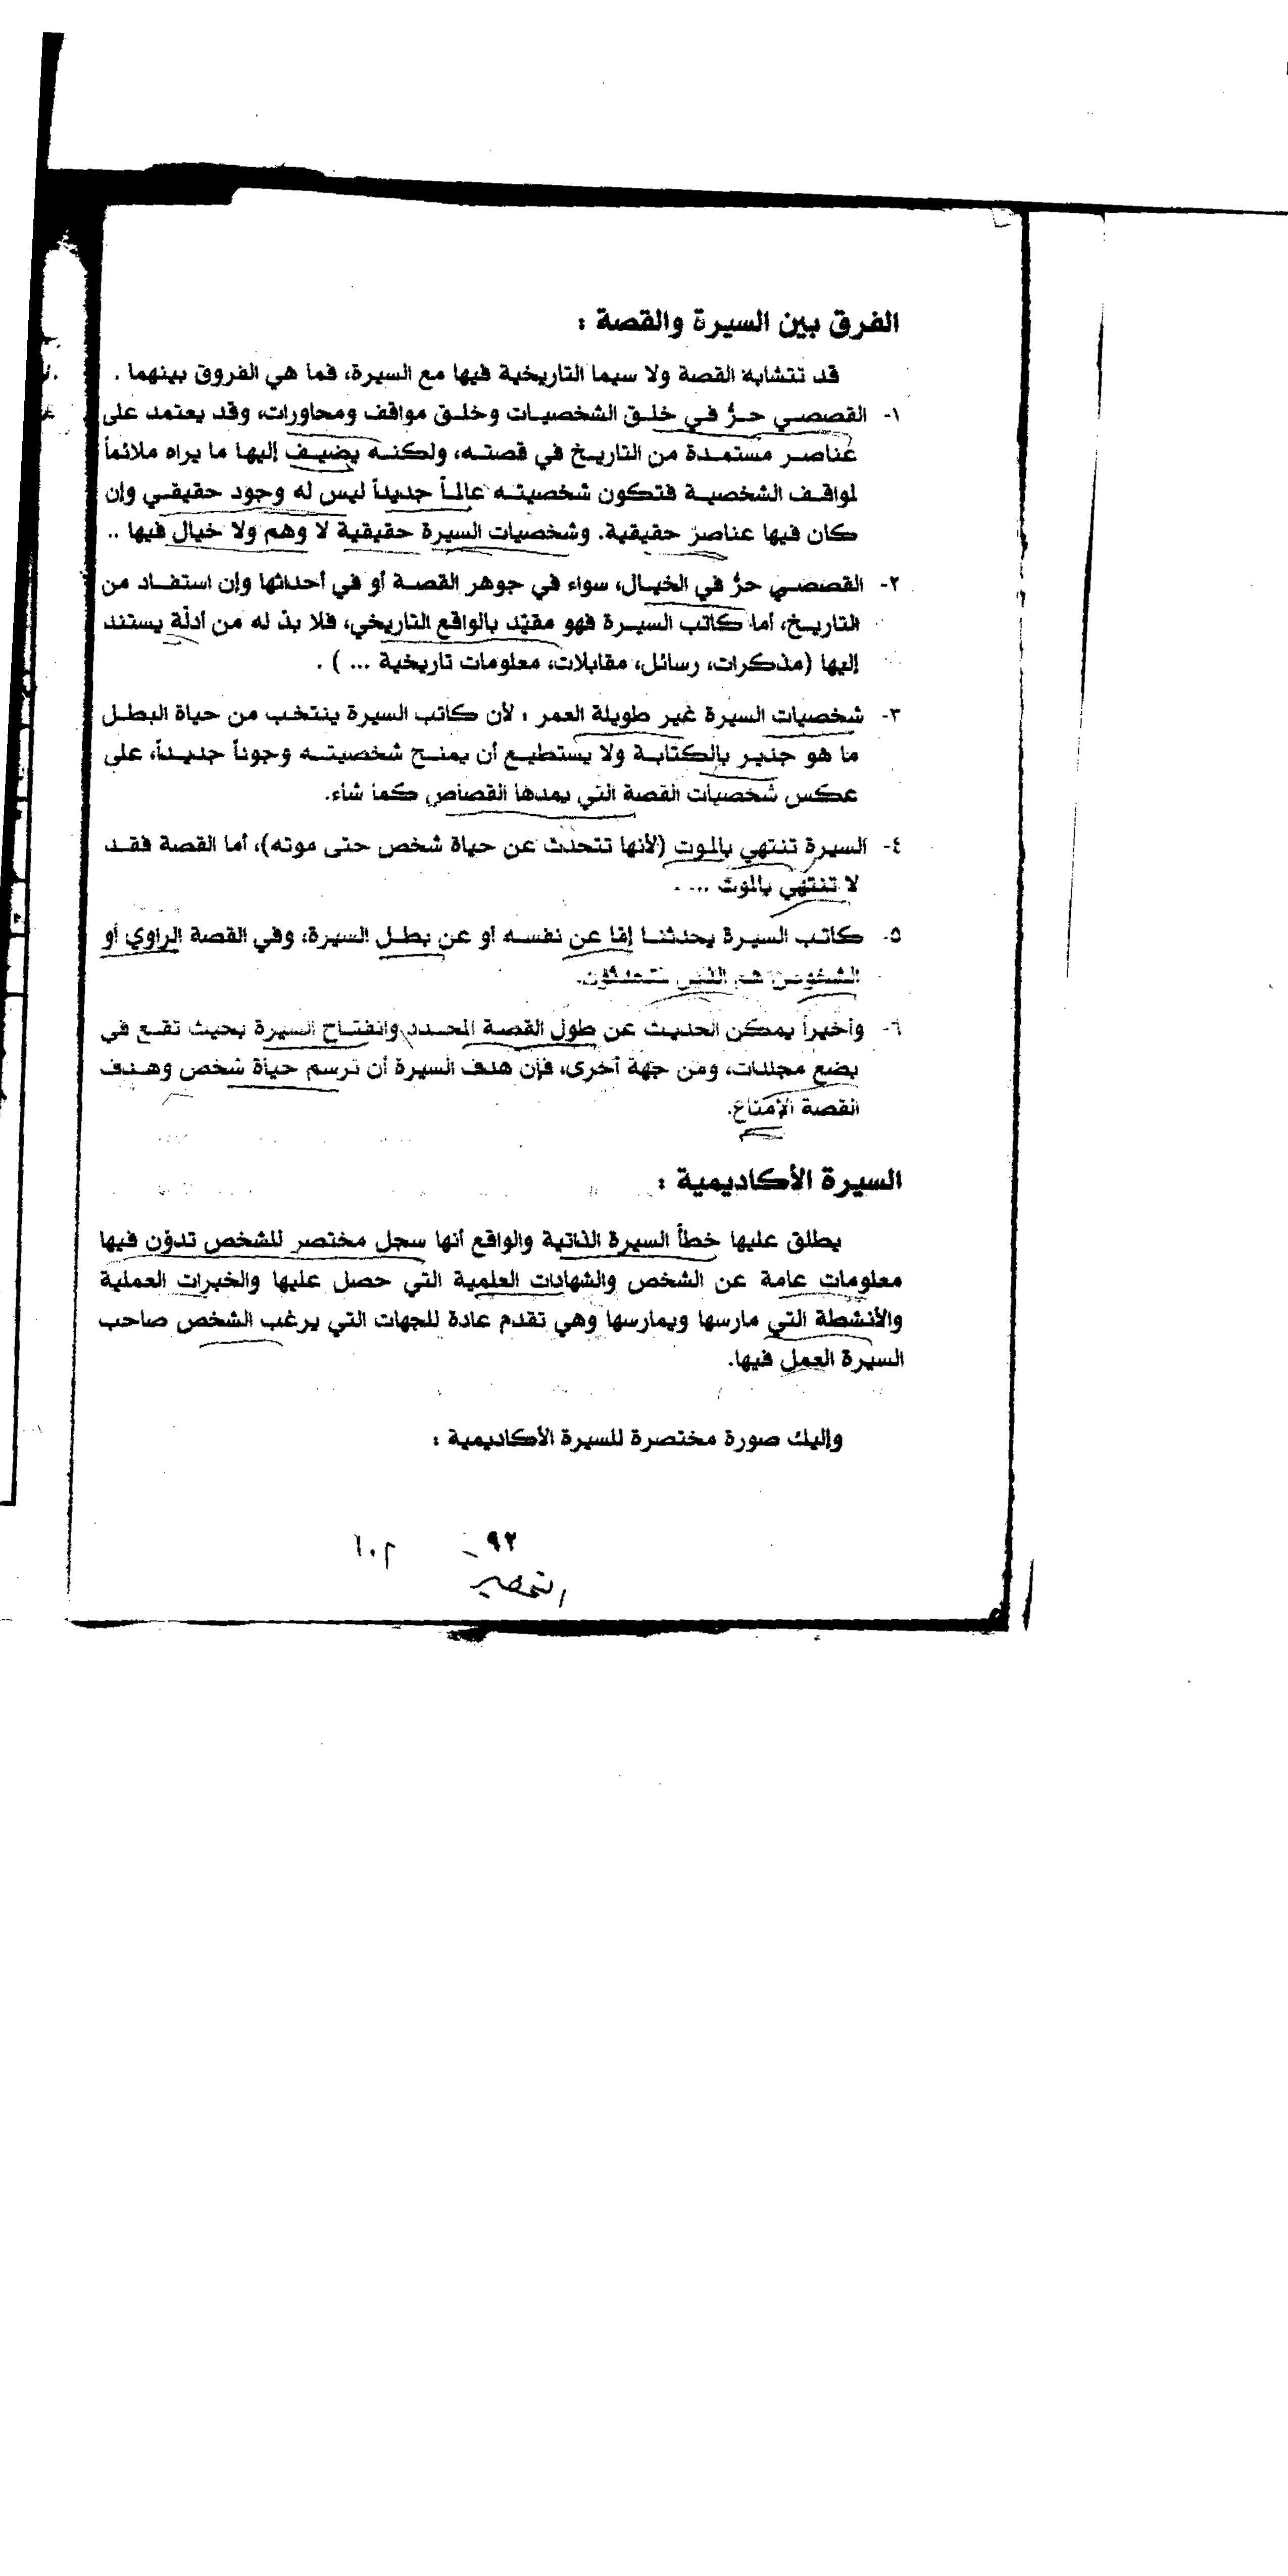 الفرق بين السيرة والقصة :
قد تتشابه القصة ولا سيما التاريخية فيها مع السيرة، فما هي الفروق بينهما .
١- القصصي حرٌّ في خلق الشخصيات وخلق مواقف ومحاورات، وقد يعتمد على
عناصر مستمدة من التاريخ في قصته، ولكنه يضيف إليها ما يراه ملائماً
لمواقف الشخصية فتكون شخصيته عالماً جديداً ليس له وجود حقيقي وإن
كان فيها عناصر حقيقية. وشخصيات السيرة حقيقية لا وهم ولا خيال فيها ..
٢- القصصي حرٌّ في الخيال، سواء في جوهر القصة أو في أحداثها وإن استفاد من
التاريخ، أما كاتب السيرة فهو مقيّد بالواقع التاريخي، فلا بدّ له من أدلّة يستند
إليها (مذكرات، رسائل، مقابلات، معلومات تاريخية ... ) .
٣- شخصيات السيرة غير طويلة العمر ؛ لأن كاتب السيرة ينتخب من حياة البطل
ما هو جدير بالكتابة ولا يستطيع أن يمنح شخصيته وجوداً جديداً، على
عكس شخصيات القصة التي يمدها القصاص كما شاء.
٤- السيرة تنتهي بالموت (لأنها تتحدث عن حياة شخص حتى موته)، أما القصة فقد
لا تنتهي بالموت ....
٥- كاتب السيرة يحدثنا إمّا عن نفسه أو عن بطل السيرة، وفي القصة الراوي أو
الشخوص هم الذين يتحدثون.
٦- وأخيراً يمكن الحديث عن طول القصة المحدد وانفتاح السيرة بحيث تقع في
بضع مجلدات، ومن جهة أخرى، فإن هدف السيرة أن ترسم حياة شخص وهدف
القصة الإمتاع.
السيرة الأكاديمية :
يطلق عليها خطأ السيرة الذاتية والواقع أنها سجل مختصر للشخص تدوّن فيها
معلومات عامة عن الشخص والشهادات العلمية التي حصل عليها والخبرات العملية
والأنشطة التي مارسها ويمارسها وهي تقدم عادة للجهات التي يرغب الشخص صاحب
السيرة العمل فيها.
وإليك صورة مختصرة للسيرة الأكاديمية :
٩٢